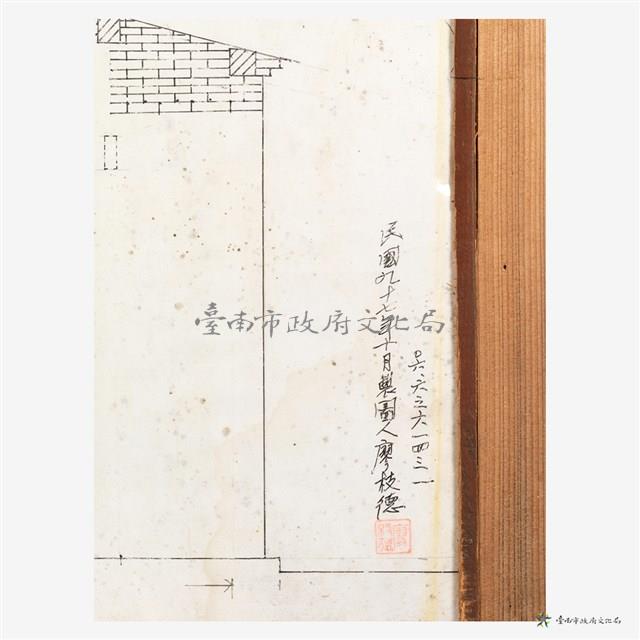 民國九十七年十月製圖人廖枝德
六三六一四三一
臺南市政府文化局
臺南市政府文化局